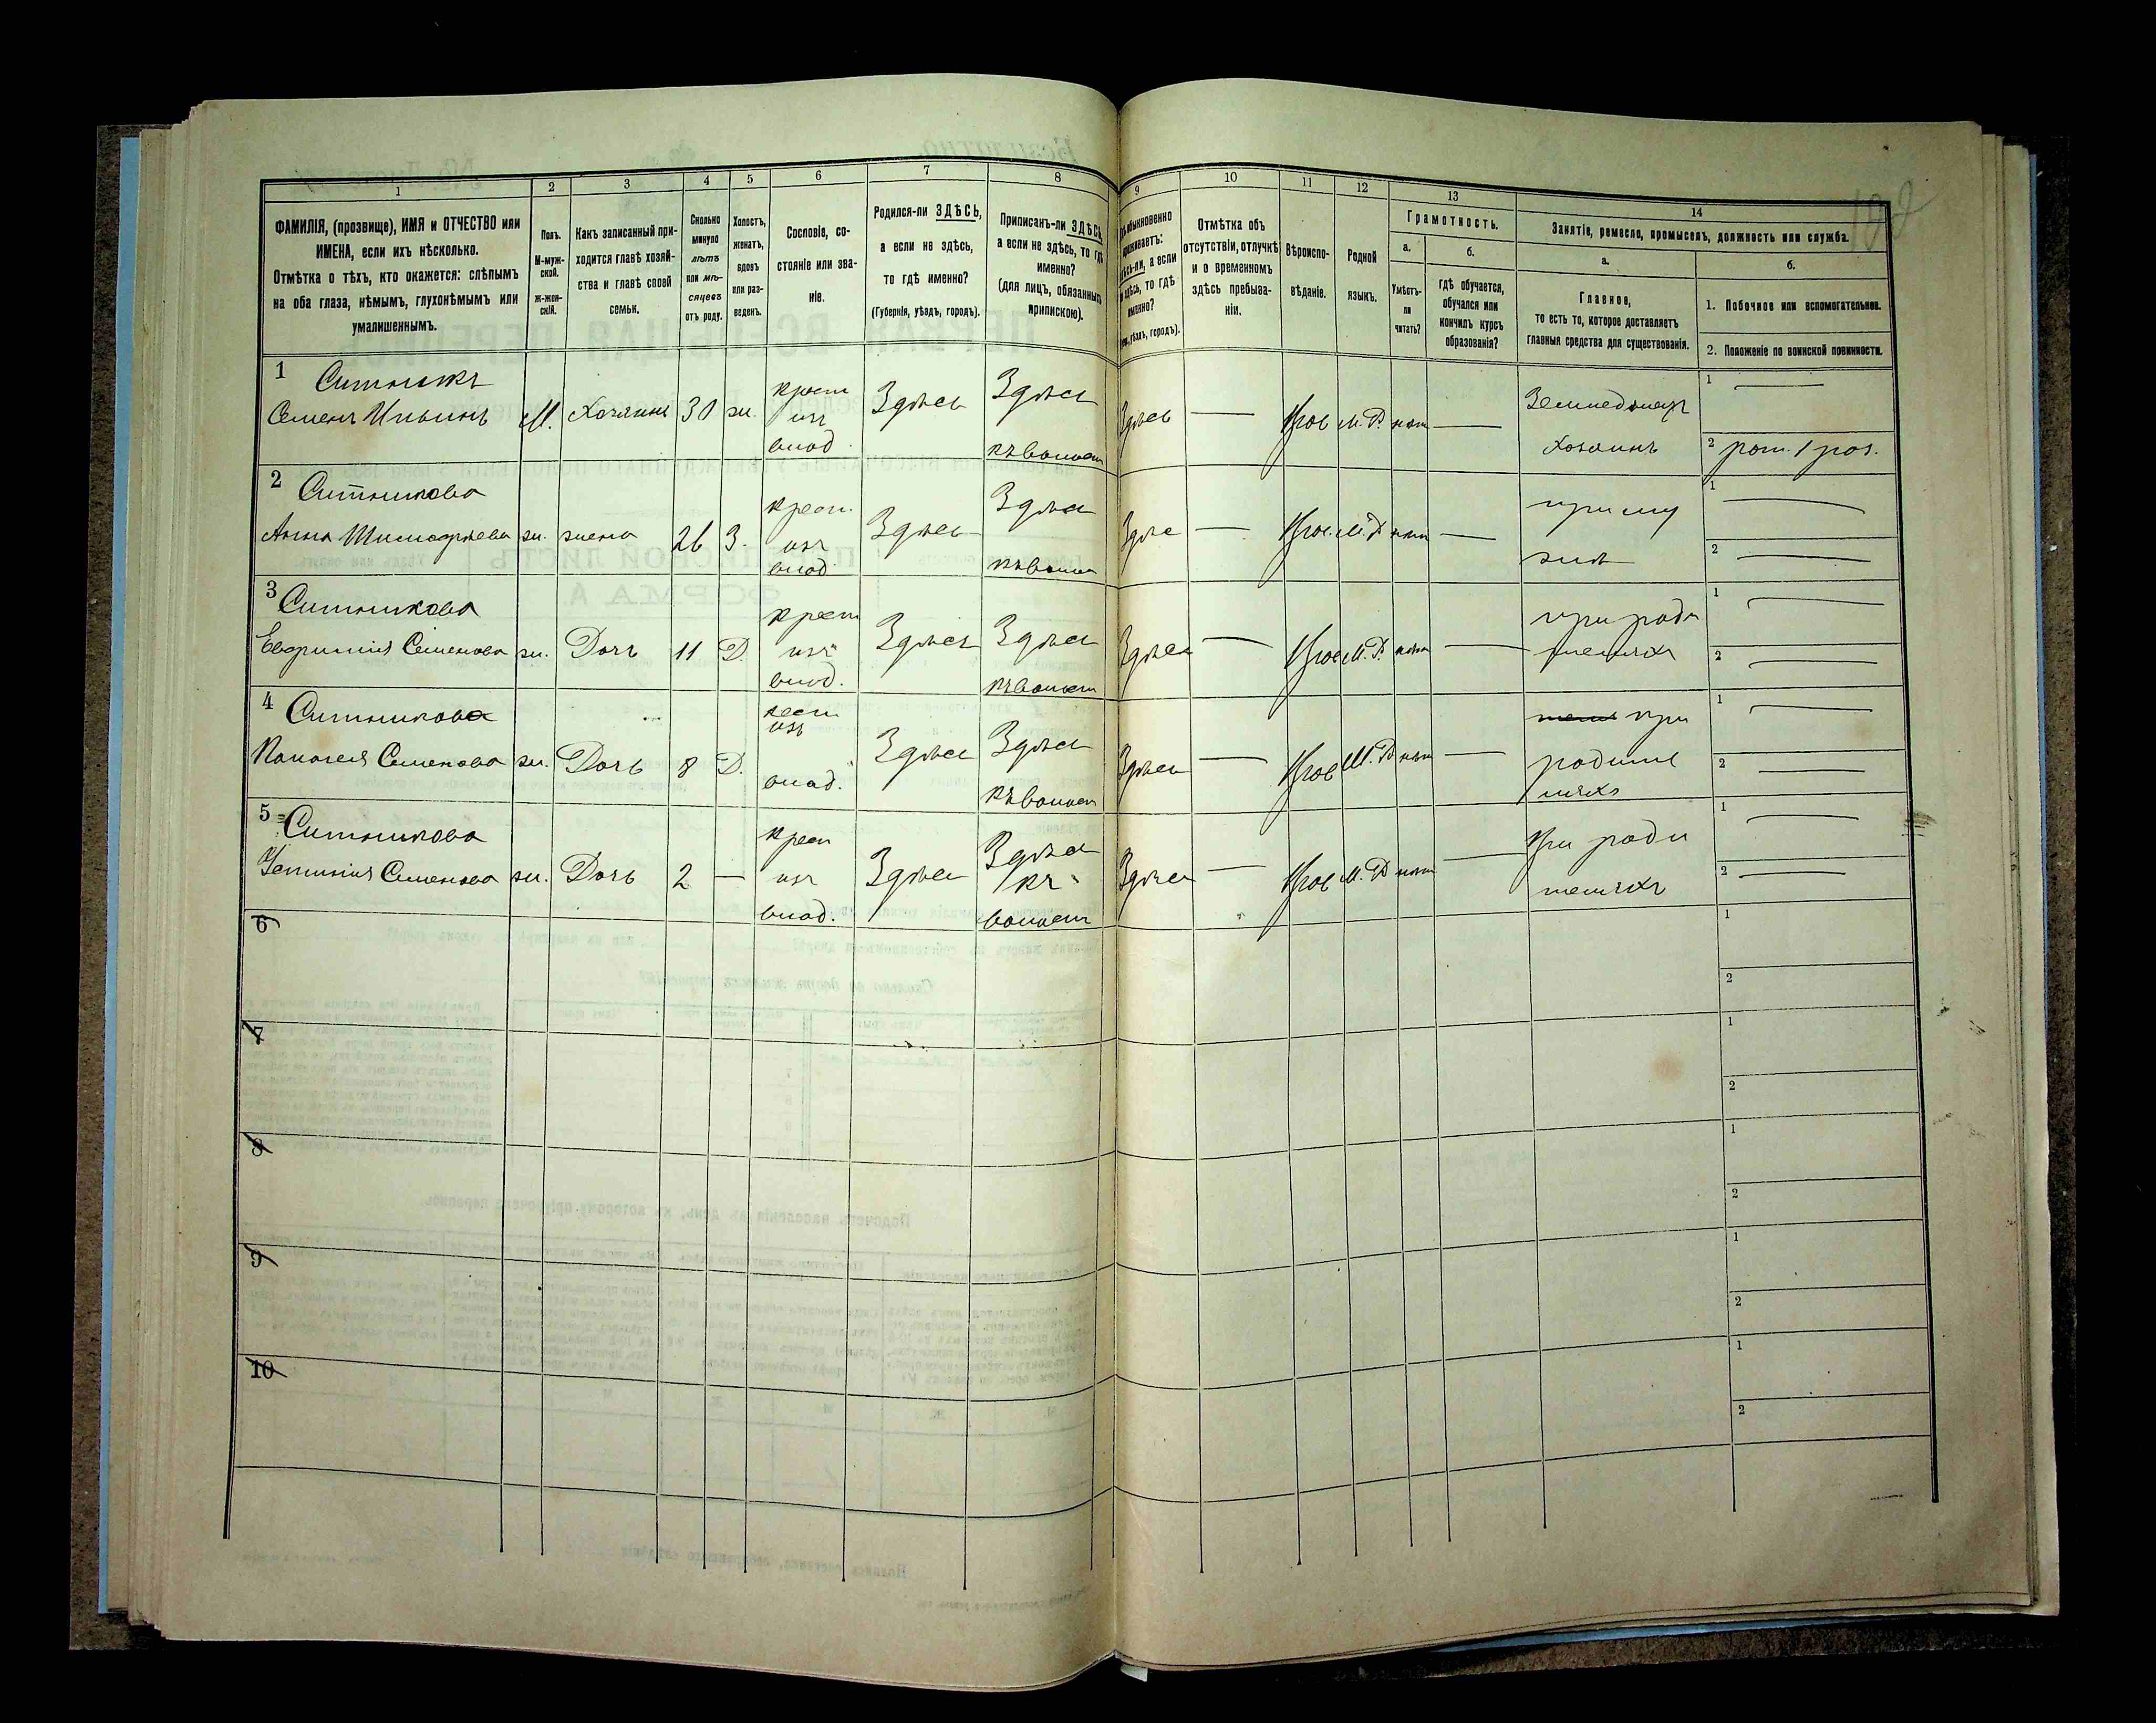 1 2 3 4 5 6 7 8 9 10 11 12 13 14
ФАМИЛІЯ, (прозвище), ИМЯ и ОТЧЕСТВО или
ИМЕНА, если ихъ нѣсколько.
Отмѣтка о тѣхъ, кто окажется: слѣпымъ
на оба глаза, нѣмымъ, глухонѣмымъ или
умалишеннымъ.
Полъ.
М-муж-
ской.
ж-жен-
скій.
Какъ записанный при-
ходится главѣ хозяй-
ства и главѣ своей
семьи.
Сколько
минуло
лѣтъ
или мѣ-
сяцевъ
отъ роду.
Холостъ,
женатъ,
вдовъ
или раз-
веденъ.
Сословіе, со-
стояніе или зва-
ніе.
Родился-ли ЗДѢСЬ,
а если не здѣсь,
то гдѣ именно?
(Губернія, уѣздъ, городъ).
Приписанъ-ли ЗДѢСЬ,
а если не здѣсь, то гдѣ
именно?
(для лицъ, обязанныхъ
припискою).
обыкновенно
а если
здѣсь, то гдѣ
именно?
уѣздъ, городъ).
Отмѣтка объ
отсутствіи, отлучкѣ
и о временномъ
здѣсь пребыва-
ніи.
Вѣроиспо-
вѣданіе.
Родной
языкъ.
Грамотность.
а.
Умѣетъ-
ли
читать?
б.
гдѣ обучается,
обучался или
кончилъ курсъ
образованія?
Занятіе, ремесло, промыселъ, должность или служба.
а.
Главное,
то есть то, которое доставляетъ
главныя средства для существованія.
б.
1. Побочное или вспомогательное.
2. Положеніе по воинской повинности.
1 Ситникъ
Семенъ Ильинъ М. Хозяинъ 30 ж. крест изъ влад. Здѣсь Здѣсь Здѣсь — Прав М. Р. нѣт — Земледѣлецъ
Хозяинъ
1 —
2 рат. 1 раз.
2 Ситникова
Анна Тимофѣева ж. жена 26 З. крест. изъ влад Здѣсь Здѣсь — Прав. М. Р нѣт — при му
жѣ
1 —
2 —
3 Ситникова
Евфимія Семенова ж. Дочь 11 Д. крест изъ влад. Здѣсь Здѣсь Здѣсь — Прав М. Р. нѣт — при роди
телях
1 —
2 —
4 Ситникова
Семенова ж. Дочь 8 Д. изъ влад. Здѣсь Здѣсь Здѣсь — Прав М. Р нѣт — при
родите
ляхъ
1 —
2 —
5 Ситникова
Устинія Семенова ж. Дочь 2 — крест изъ влад. Здѣсь Здѣсь Здѣсь — Прав М. Р нѣт — При роди
теляхъ
1 —
2 —
6
1
2
7
1
2
8
1
2
9
1
2
10
1
2